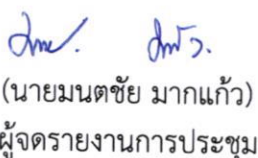 (นายมนตชัย มากแก้ว)
ผู้จดรายงานการประชุม